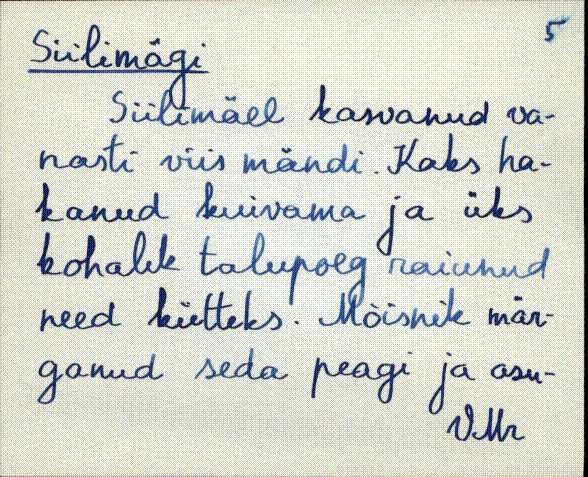 5
Siilimägi
Siilimäel kasvanud va-
nasti viis mändi. Kaks ha-
kanud kuivama ja üks
kohalik talupoeg raiunud
need kütteks. Mõisnik mär-
ganud seda peagi ja asu-
VMr